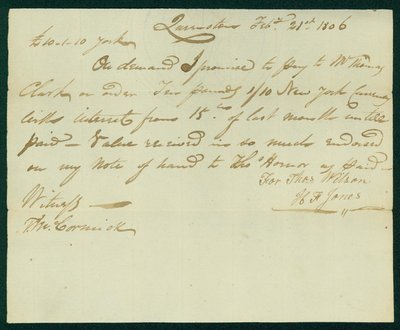 Queenston Feb.y 21st 1806
£10-1-10 York
On demand I promise to pay to Mr Thomas
Clark or order Ten pounds 1/10 New York Currency
with interest from 15th of last month untill
paid — Value received in so much endorsed
on my Note of hand to Thos Hornor as paid —
For Thos Wilson
H F Jones
Witness —
Th McCormick